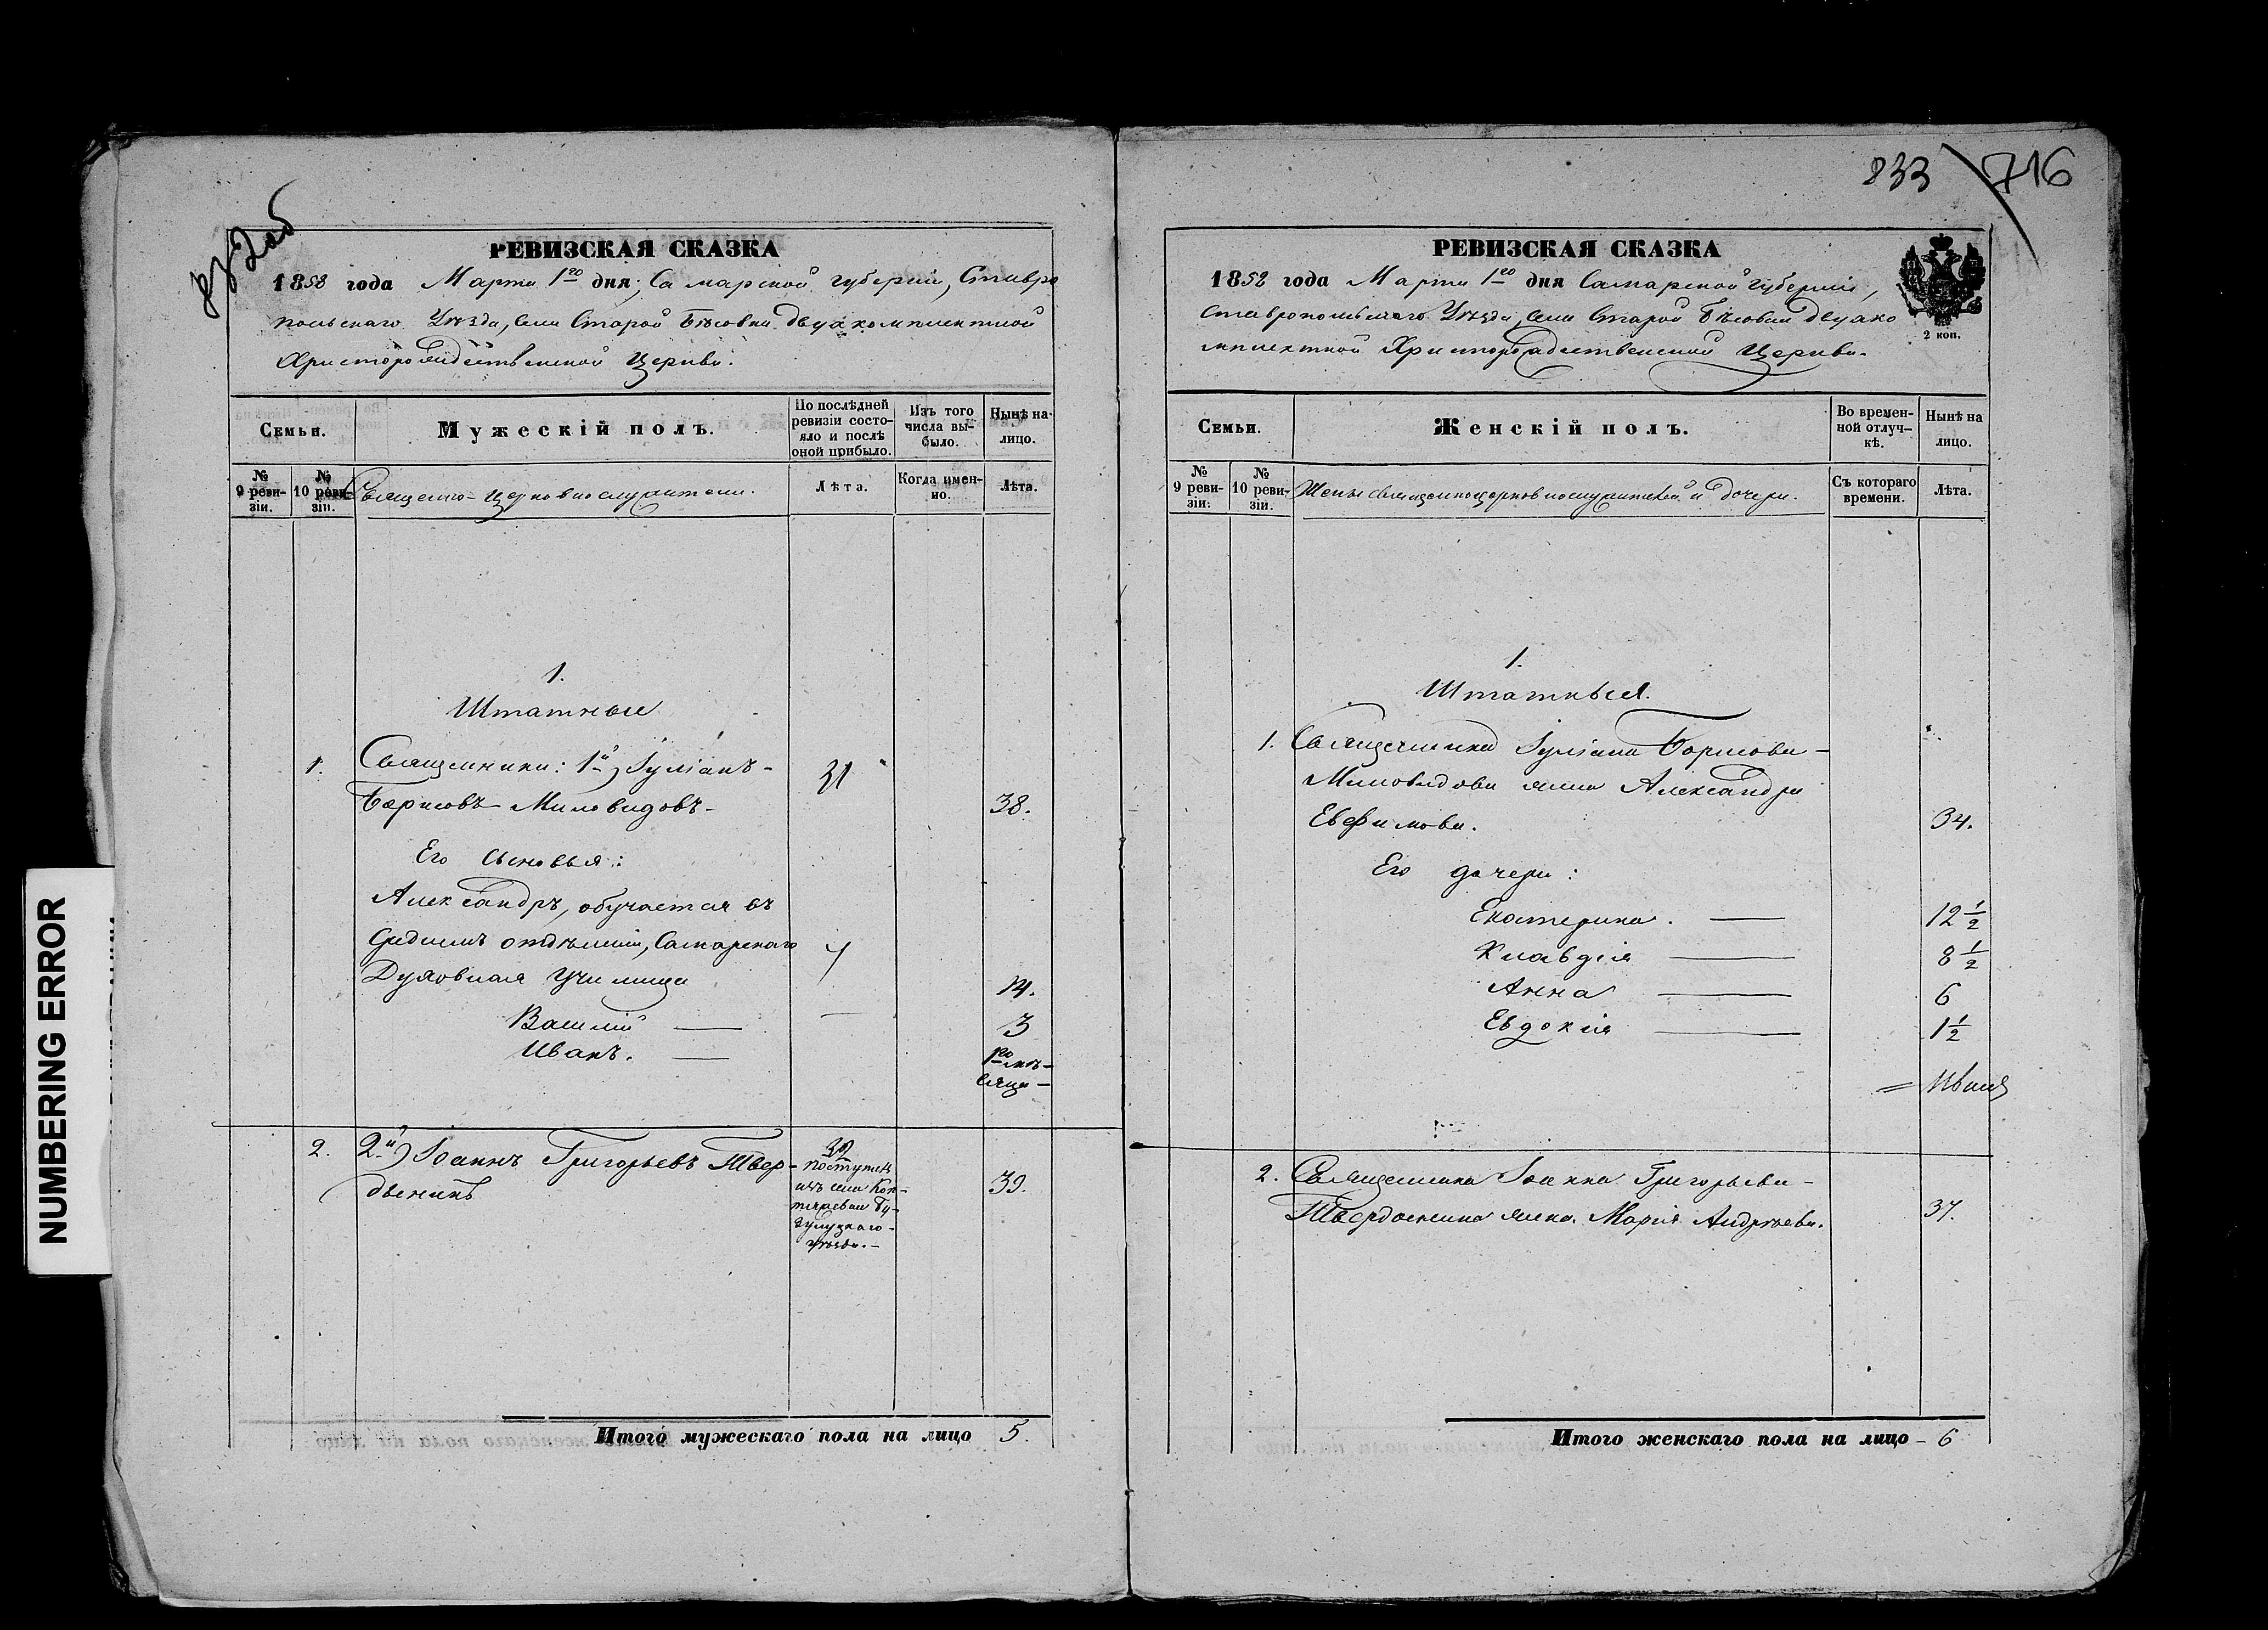 833 716
NUMBERING ERROR
РЕВИЗСКАЯ СКАЗКА
1858 года Марта 1го дня, Самарской губерніи, Ставро
польскаго Уѣзда, села Старой Бѣсовки двухкомплектной
Христорождественской Церкви.
Семьи.
Мужескій полъ.
По послѣдней
ревизіи состо-
яло и послѣ
оной прибыло.
Изъ того
числа вы-
было.
Нынѣ на-
лицо.
№
9 реви-
зіи.
№
10 реви-
зіи.
Священно-церковнослужители.
Лѣта.
Когда имен-
но.
Лѣта.
1.
Штатные
1. Священники: 1й) Іуліанъ 31
Борисовъ Миловидовъ 38.
Его сыновья:
Александръ, обучается въ
среднемъ отдѣленіи, Самарскаго
Духовнаго Училища 14.
Василій — 3
Иванъ. — 1го мѣ-
сяца
2. 2й) Іоаннъ Григорьевъ Твер-
поступилъ
изъ села
Бу-
зулузкаго
уѣзда.
39.
Итого мужескаго пола на лицо 5.
РЕВИЗСКАЯ СКАЗКА
1858 года Марта 1го дня Самарской губерніи,
Ставропольскаго Уѣзда, села Старой Бѣсовки двухко
мплектной Христорождественской Церкви.
2 коп.
Семьи.
Женскій полъ.
Во времен-
ной отлуч-
кѣ.
Нынѣ на
лицо.
№
9 реви-
зіи.
№
10 реви-
зіи.
Жены священноцерковнослужителей и дочери.
Съ котораго
времени.
Лѣта.
1.
Штатныя.
1. Священника Іуліана Борисова
Миловидова жена Александра
Евфимова. 34.
Его дочери:
Екатерина. — 12 1/2
Клавдія — 8 1/2
Анна — 6
Евдокія — 1 1/2
2. Священника Іоанна Григорьева
жена Марія Андрѣева. 37.
Итого женскаго пола на лицо - 6